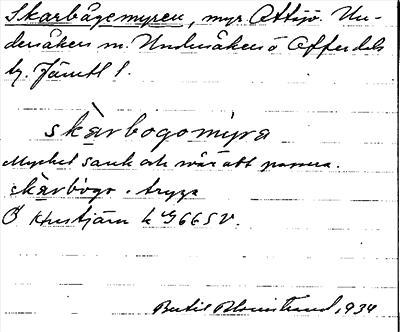 Skarbågemyren, myr. Ottsjö. Un-
dersåkers sn. Undersåkers o Offerdals
tg. Jämtl l.
skàrbogomýra
Mycket sank och svår att passera.
skàrbogo. trygga
Ö Khustjärn h G665V.
Bertil Blomstrand, 1934